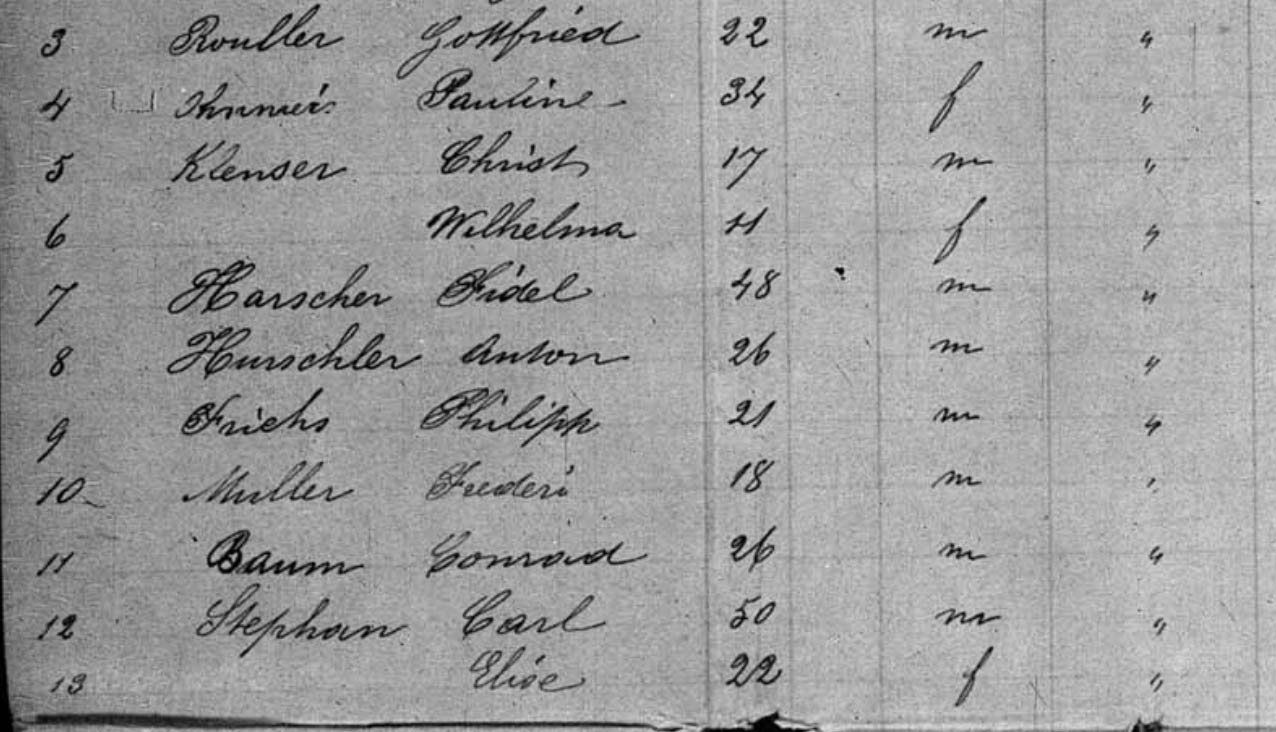 3 Rouller Gottfried 22 m "
4 Pauline 34 f "
5 Klenser Christ 17 m "
6 Wilhelma 11 f "
7 Harscher Fidel 48 m "
8 Hurschler Anton 26 m "
9 Frichs Philipp 21 m "
10 Muller Frederi 18 m "
11 Baum Conrad 26 m "
12 Stephan Carl 50 m "
13 Elise 22 f "